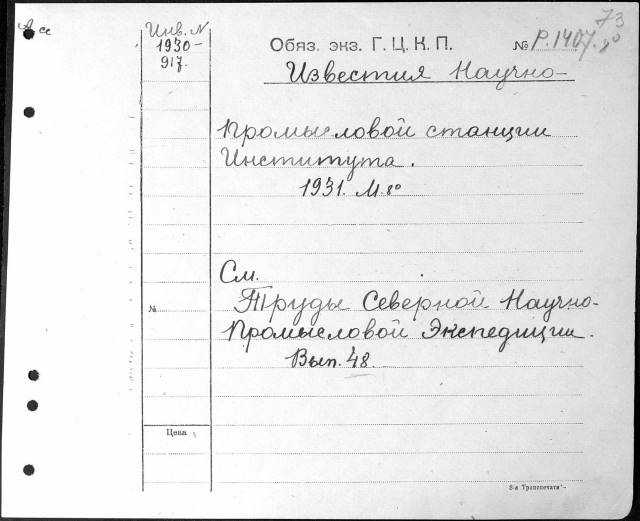 73
Инв. N
1930-
917.
Обяз. экз. Г. Ц. К. П.
№ Р.1407.8°
Известия Научно-
Промысловой станции
Института.
1931. М. 8°
См.
Труды Северной Научно-
Промысловой Экспедиции.
Вып. 48.
№
Цена